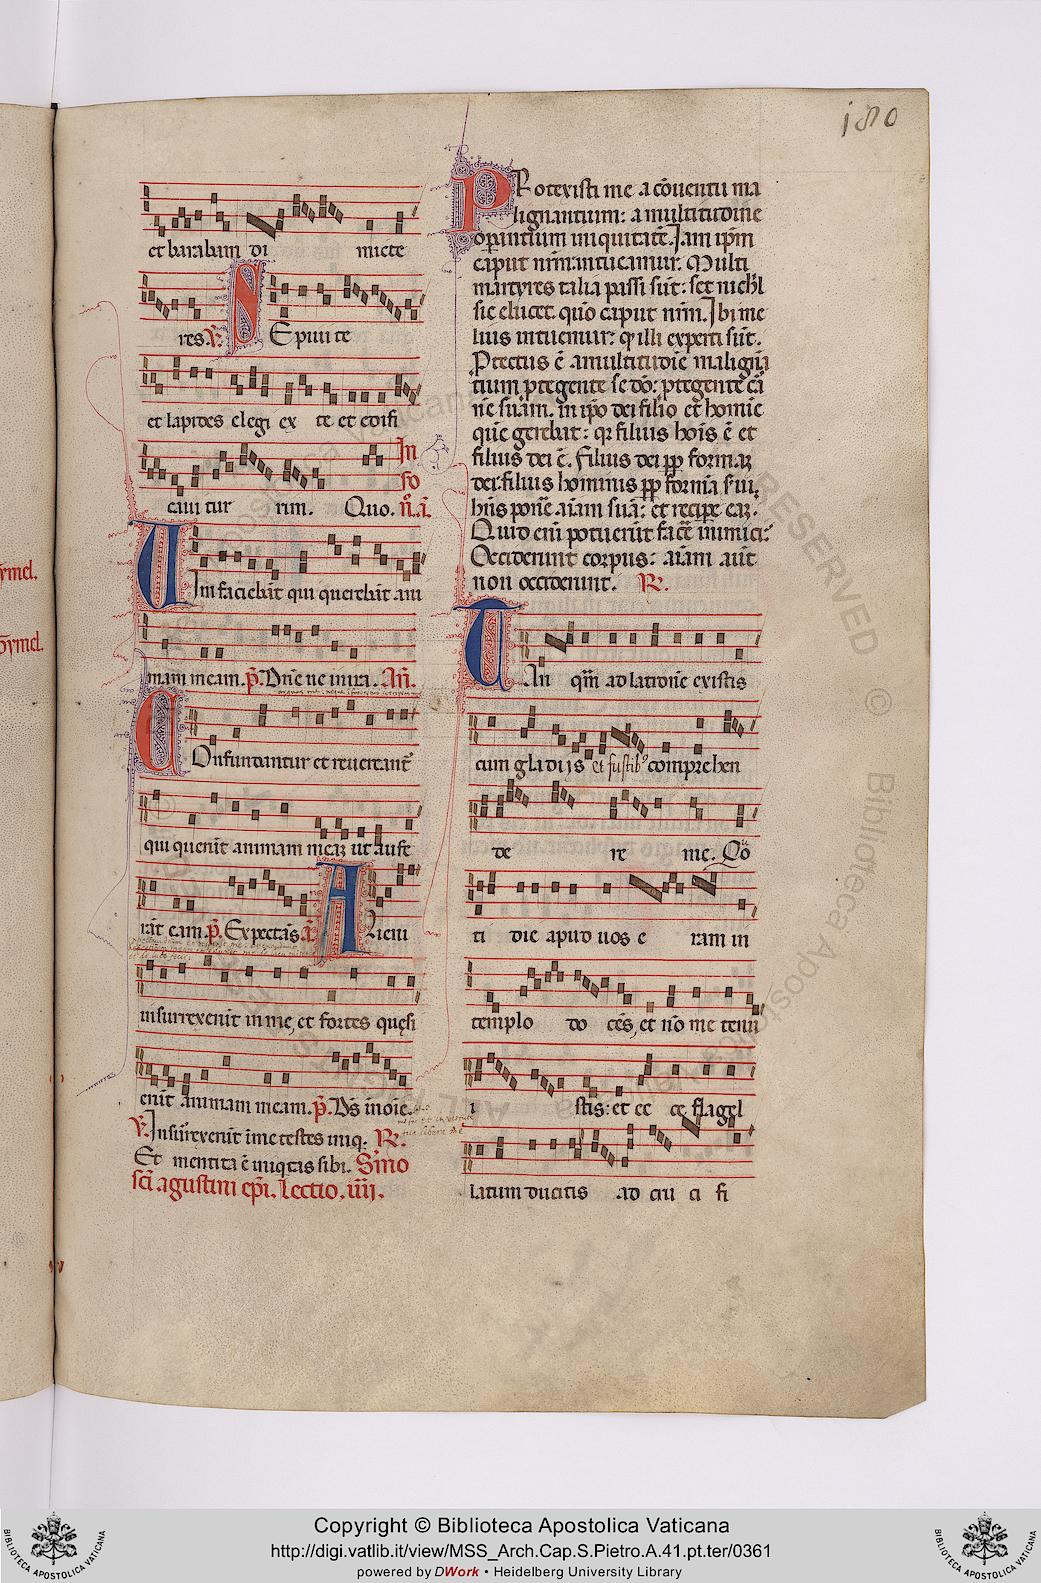 180
et baraban di micte
res. V. SEpiui te
et lapides elegi ex te et edifi
caui tur rim. Quo. In
so
VIm faciebāt qui querebāt ani
mam meam. p̄. Dn̄e ne in ira. An̄.
COnfundantur et reuereant̄
qui querūt animam meaꝫ ut aufe
rāt eam. p̄. Expectās. A. ALieni
insurrexerūt in me, et fortes quesi
erūt animam meam. p̄. Ds̄ in noīe.
V. Insur̄rexerūt ī me testes iniq̄. R.
Et mentita ē iniqtas sibi. Smo
sci agustini epi. Lectio. iiij.
PRotexisti me a cōuentu ma
lignantium: a multitudine
operantium iniquitatē. Iam ip̄m
caput nr̄m intueamur. Multi
martyres talia passi sūt: set nich'l
sic elucet quō caput nr̄m. Ibi me
lius intuemur: q illi experti sūt.
Ptectus ē a multitudīe malignā
tium ptegente se dō: ptegente cā
nē suām. in ipo dei filio et homīe
quē gerebat: qr filius hoīs ē et
filius dei ē. Filius dei pp formaꝫ
dei: filius hominis pp formā s'ui,
hn̄s ponē aīam suā: et recipe eaꝫ.
Quid enī potuerūt facē inimici?
Occiderunt corpus: aīam aūt
non occiderunt. R.
TAn qm̄ ad latronē existis
cum gladijs et fustib' comprehen
de re me. Co
ti die apud uos e ram in
templo do cēs, et nō me tenu
i stis: et ec ce flagel
latum ducitis ad cru ci fi
Copyright © Biblioteca Apostolica Vaticana
http://digi.vatlib.it/view/MSS_Arch.Cap.S.Pietro.A.41.pt.ter/0361
powered by DWork • Heidelberg University Library